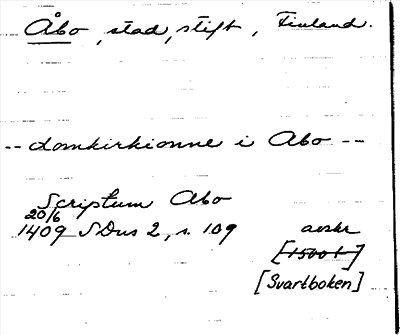 Åbo, stad, stift, Finland.
-- domkirkionne i Abo --
Scriptum Abo
20/6
1409 SDns 2, s. 109 avskr
[1500t]
[Svartboken]